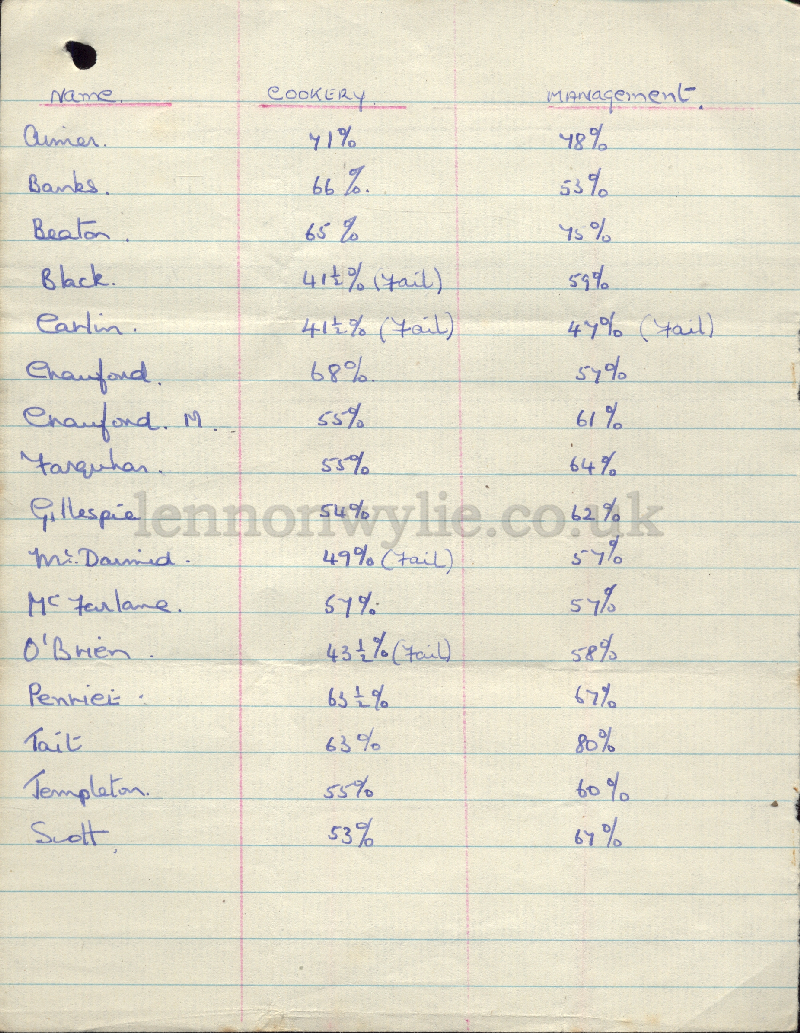 Name. COOKERY. MANAgement.
Aimer. 71% 78%
Banks. 66%. 53%
Beaton. 65% 75%
Black. 41½% (Fail) 59%
Carlin. 41½% (Fail) 47% (Fail)
Crauford. 68%. 57%
Crauford. M. 55% 61%
Farquhar. 55% 64%
Gillespie 54% 62%
lennonwylie.co.uk
Mc. Darmid. 49% (Fail) 57%
Mc Farlane. 57% 57%
O'Brien. 43½% (Fail) 58%
63½% 67%
Tait 63% 80%
Templeton. 55% 60%
Scott. 53% 67%